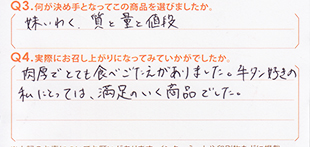 Q3.何が決め手となってこの商品を選びましたか。
妹いわく、質と量と値段
Q4.実際にお召し上がりになってみていかがでしたか。
肉厚でとても食べごたえがありました。牛タン好きの
私にとっては、満足のいく商品でした。